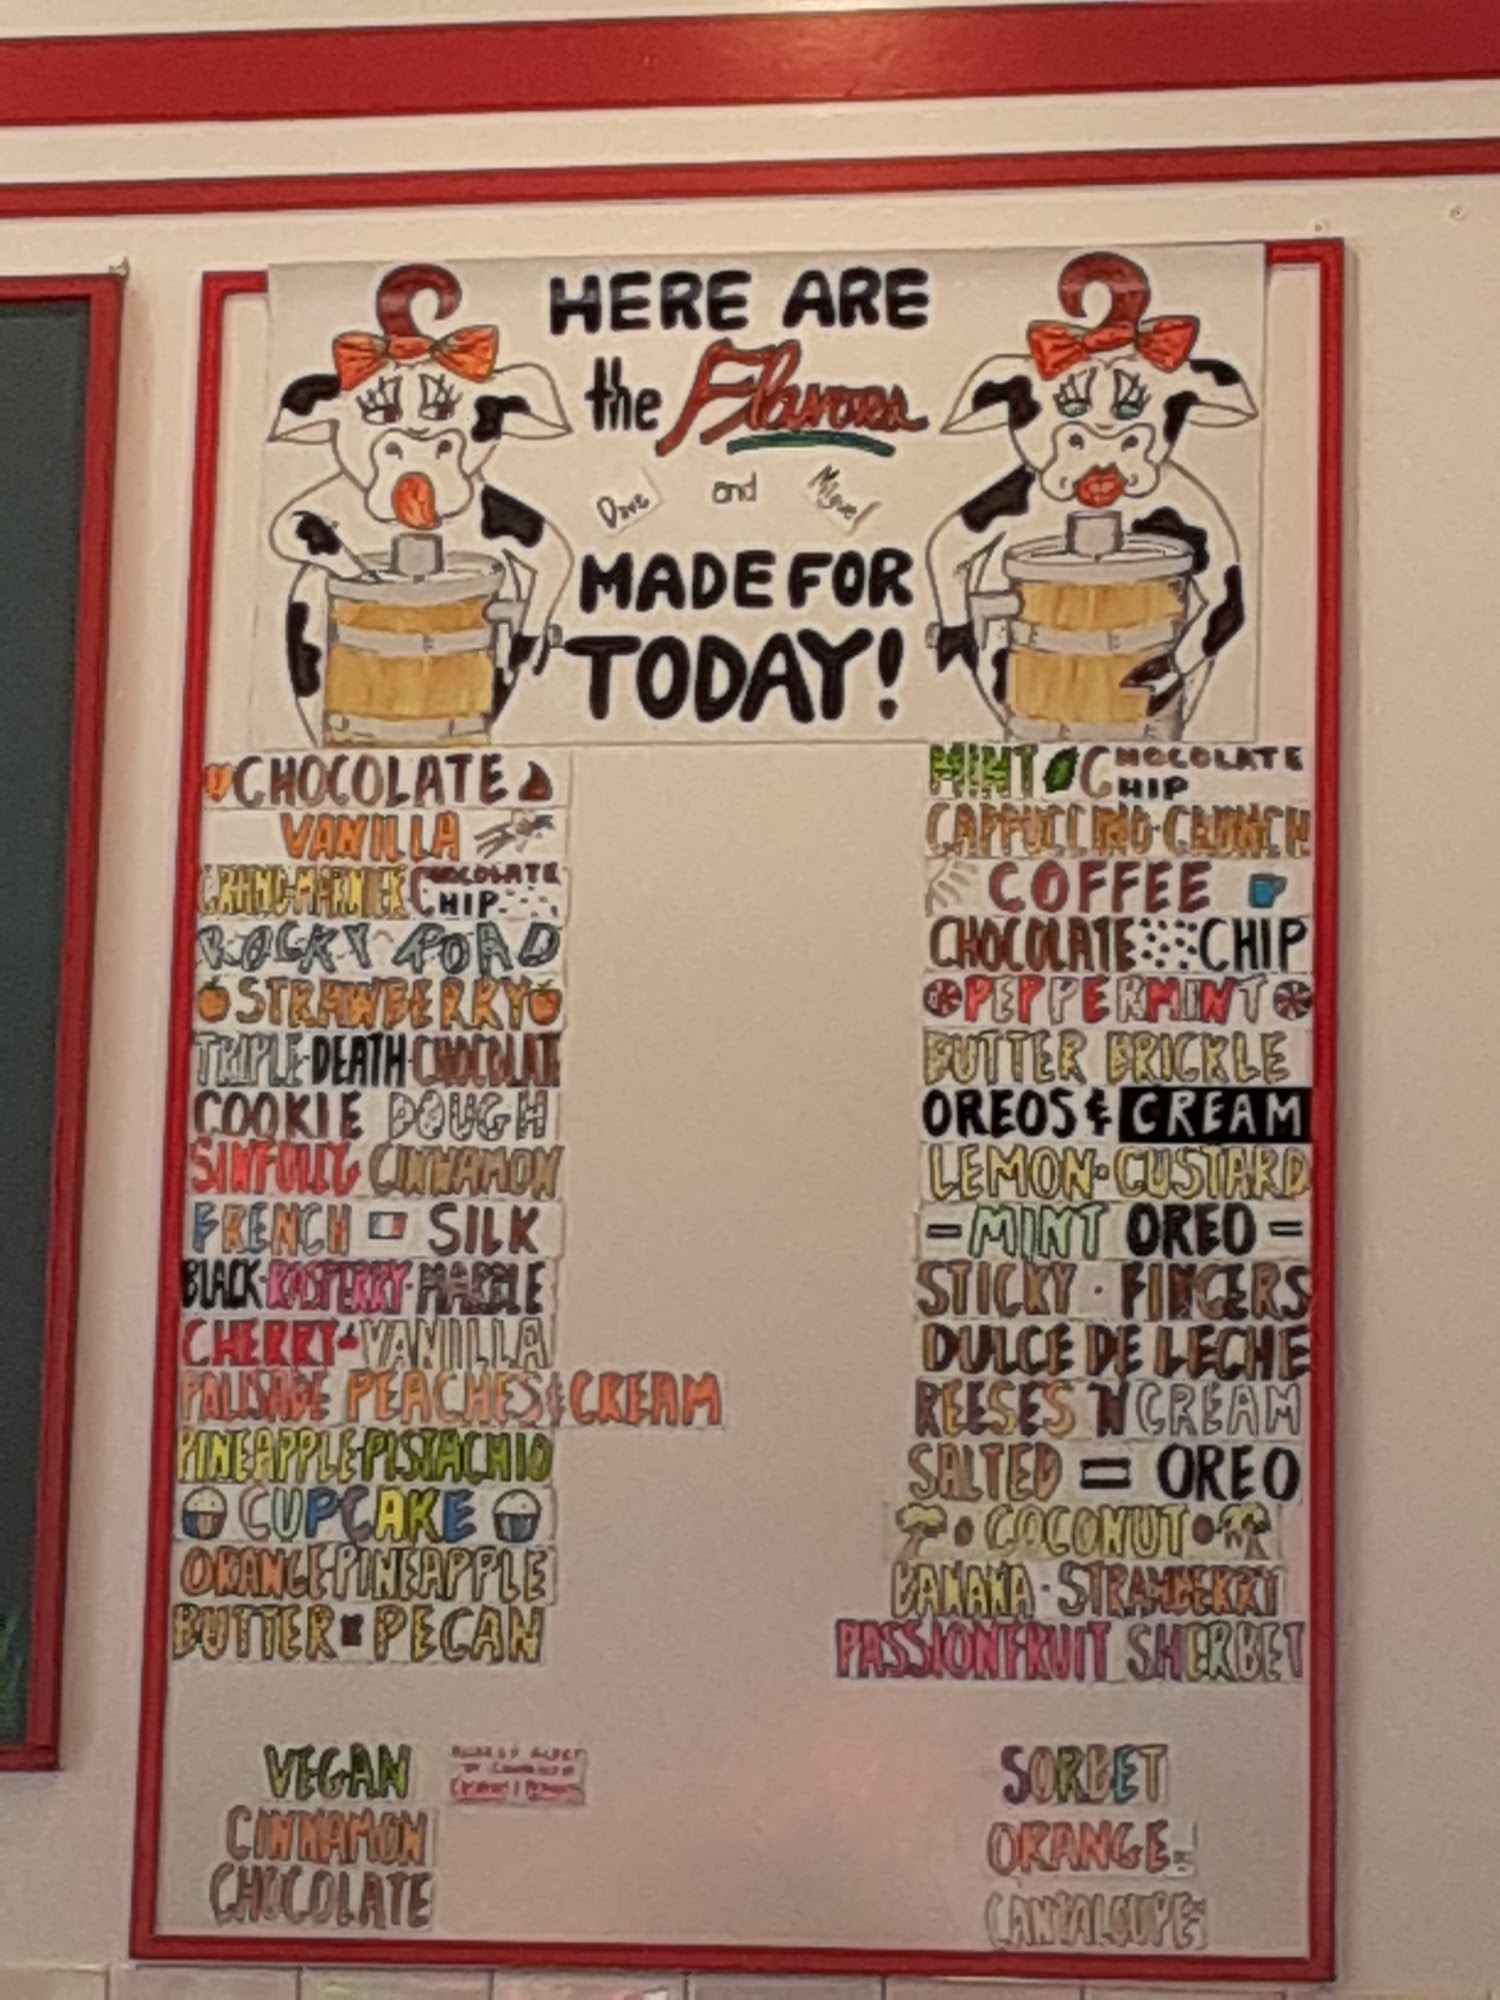 HERE ARE
the Flavors
Dave and Miguel
MADE FOR
TODAY!
CHOCOLATE
VANILLA
GRAND-MARNIER CHOCOLATE CHIP
ROCKY ROAD
STRAWBERRY
TRIPLE-DEATH-CHOCOLATE
COOKIE DOUGH
SINFULLY CINNAMON
FRENCH SILK
BLACK-RASPBERRY-MARBLE
CHERRY-VANILLA
PALISADE PEACHES & CREAM
PINEAPPLE-PISTACHIO
CUPCAKE
ORANGE-PINEAPPLE
BUTTER PECAN
MINT CHOCOLATE CHIP
CAPPUCCINO-CRUNCH
COFFEE
CHOCOLATE CHIP
PEPPERMINT
BUTTER BRICKLE
OREOS & CREAM
LEMON-CUSTARD
MINT OREO
STICKY · FINGERS
DULCE DE LECHE
REESES 'N CREAM
SALTED = OREO
COCONUT
BANANA · STRAWBERRY
PASSIONFRUIT SHERBET
VEGAN
CINNAMON
CHOCOLATE
SORBET
ORANGE
CANTALOUPE